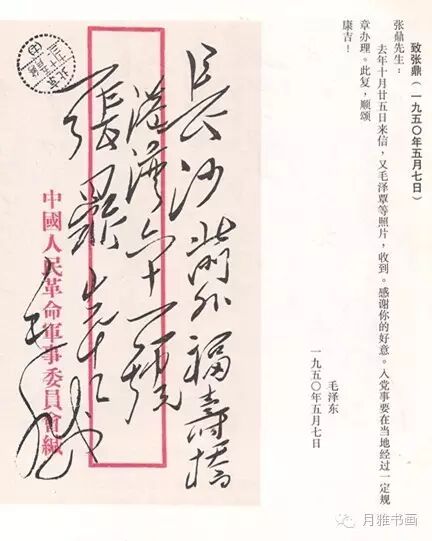 致张鼎（一九五〇年五月七日）
张鼎先生：
去年十月廿五日来信，又毛泽覃等照片，收到。感谢你的好意。入党事要在当地经过一定规
章办理。此复，顺颂
康吉！
毛泽东
一九五〇年五月七日
長沙 外福壽橋
灣六十一號
張鼎先生
中國人民革命軍事委員會緘
毛
北京
月雅书画